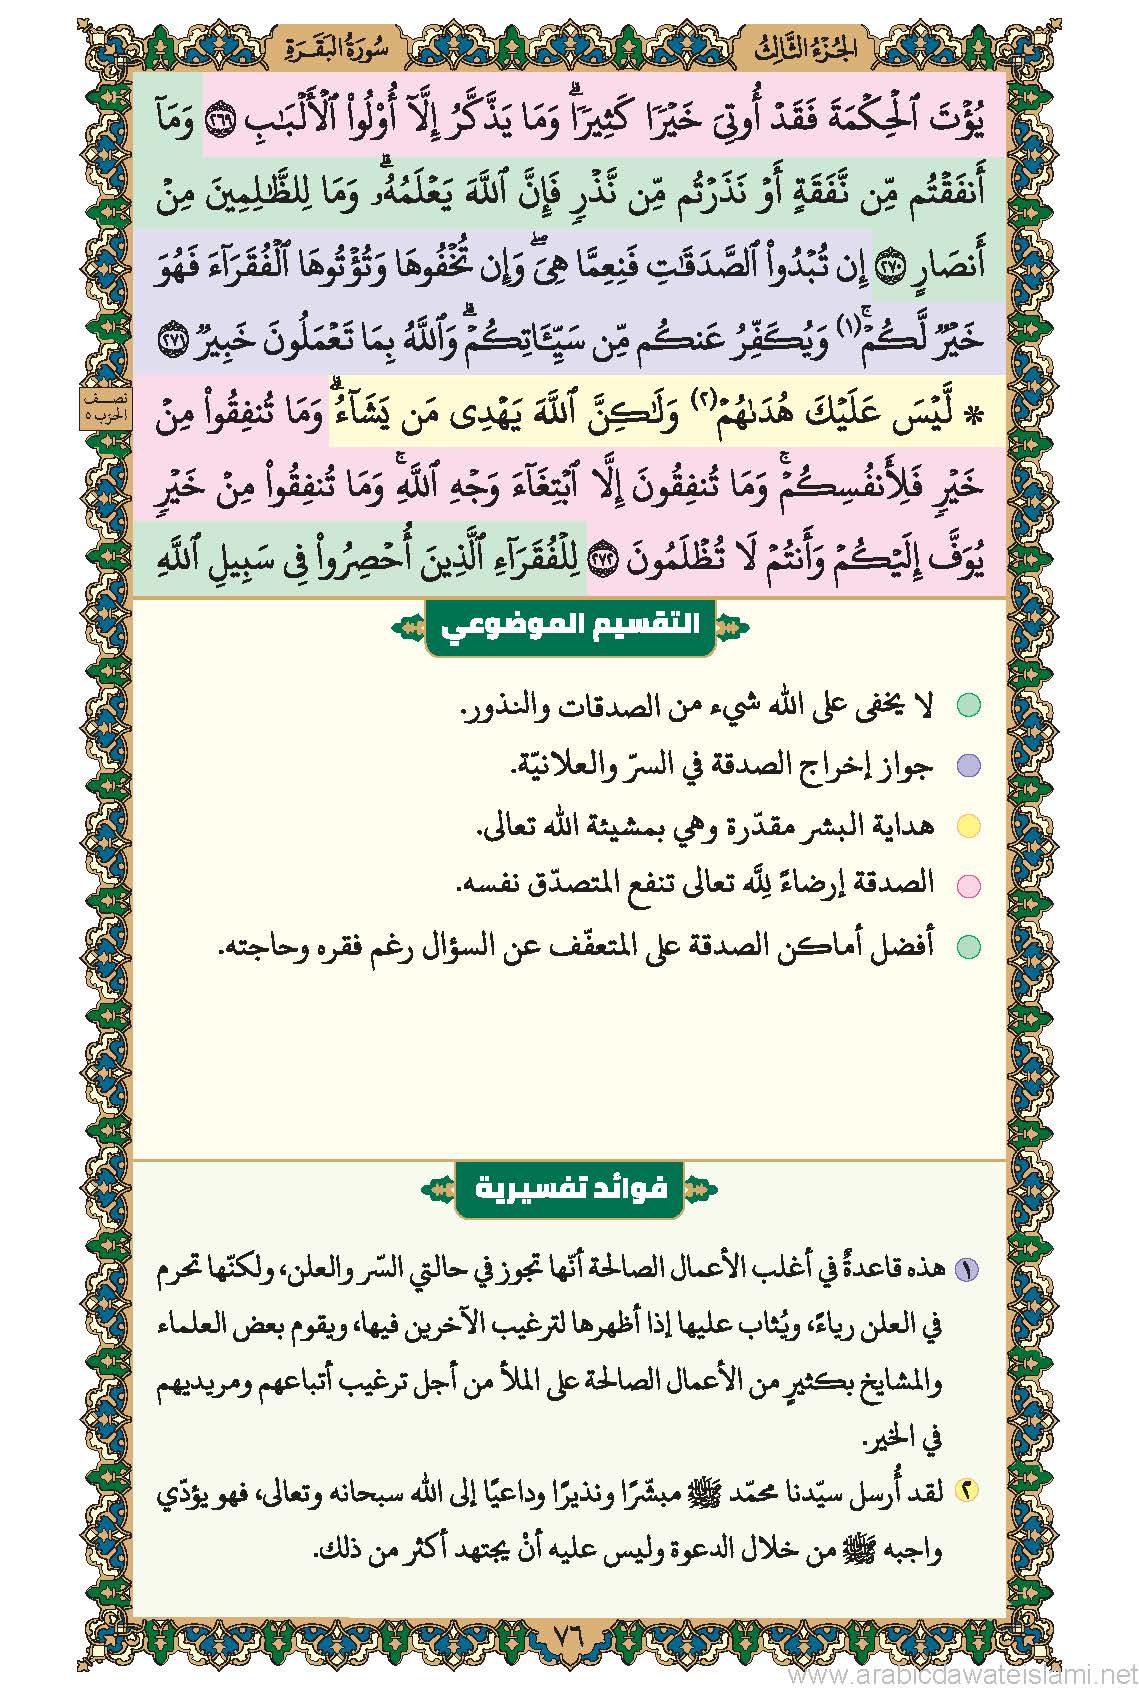 الجُزْءُ الثَّالِثُ
سُورَةُ البَقَرَةِ
يُؤْتَ ٱلْحِكْمَةَ فَقَدْ أُوتِىَ خَيْرًا كَثِيرًا ۗ وَمَا يَذَّكَّرُ إِلَّآ أُوْلُواْ ٱلْأَلْبَـٰبِ ٢٦٩ وَمَآ
أَنفَقْتُم مِّن نَّفَقَةٍ أَوْ نَذَرْتُم مِّن نَّذْرٍ فَإِنَّ ٱللَّهَ يَعْلَمُهُۥ ۗ وَمَا لِلظَّـٰلِمِينَ مِنْ
أَنصَارٍ ٢٧٠ إِن تُبْدُواْ ٱلصَّدَقَـٰتِ فَنِعِمَّا هِىَ ۖ وَإِن تُخْفُوهَا وَتُؤْتُوهَا ٱلْفُقَرَآءَ فَهُوَ
خَيْرٌ لَّكُمْ ۚ (١) وَيُكَفِّرُ عَنكُم مِّن سَيِّـَٔاتِكُمْ ۗ وَٱللَّهُ بِمَا تَعْمَلُونَ خَبِيرٌ ٢٧١
نصف
الحزب ٥
* لَّيْسَ عَلَيْكَ هُدَىٰهُمْ (٢) وَلَـٰكِنَّ ٱللَّهَ يَهْدِى مَن يَشَآءُ ۗ وَمَا تُنفِقُواْ مِنْ
خَيْرٍ فَلِأَنفُسِكُمْ ۚ وَمَا تُنفِقُونَ إِلَّا ٱبْتِغَآءَ وَجْهِ ٱللَّهِ ۚ وَمَا تُنفِقُواْ مِنْ خَيْرٍ
يُوَفَّ إِلَيْكُمْ وَأَنتُمْ لَا تُظْلَمُونَ ٢٧٢ لِلْفُقَرَآءِ ٱلَّذِينَ أُحْصِرُواْ فِى سَبِيلِ ٱللَّهِ
التقسيم الموضوعي
لا يخفى على الله شيء من الصدقات والنذور.
جواز إخراج الصدقة في السرّ والعلانيّة.
هداية البشر مقدّرة وهي بمشيئة الله تعالى.
الصدقة إرضاءً لِلّٰه تعالى تنفع المتصدّق نفسه.
أفضل أماكن الصدقة على المتعفّف عن السؤال رغم فقره وحاجته.
فوائد تفسيرية
١ هذه قاعدةٌ في أغلب الأعمال الصالحة أنّها تجوز في حالتي السّر والعلن، ولكنّها تحرم
في العلن رياءً، ويُثاب عليها إذا أظهرها لترغيب الآخرين فيها، ويقوم بعض العلماء
والمشايخ بكثيرٍ من الأعمال الصالحة على الملأ من أجل ترغيب أتباعهم ومريديهم
في الخير.
٢ لقد أُرسل سيّدنا محمّد ﷺ مبشّرًا ونذيرًا وداعيًا إلى الله سبحانه وتعالى، فهو يؤدّي
واجبه ﷺ من خلال الدعوة وليس عليه أنْ يجتهد أكثر من ذلك.
٧٦
www.arabicdawateislami.net